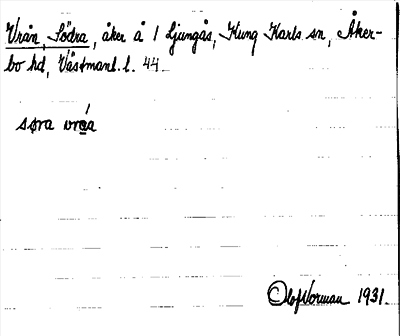 Vrån, Södra, åker å 1 Ljungås, Kung Karls sn, Åker-
bo hd, Västmanl. l. 44.
søra vråa
Olof Norman 1931.